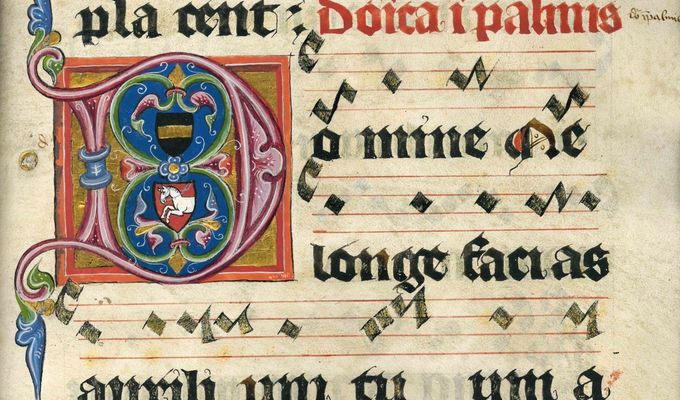 pla cent : Dōica i palmis
Domine Ne
longe faci as
auxili um tu um a